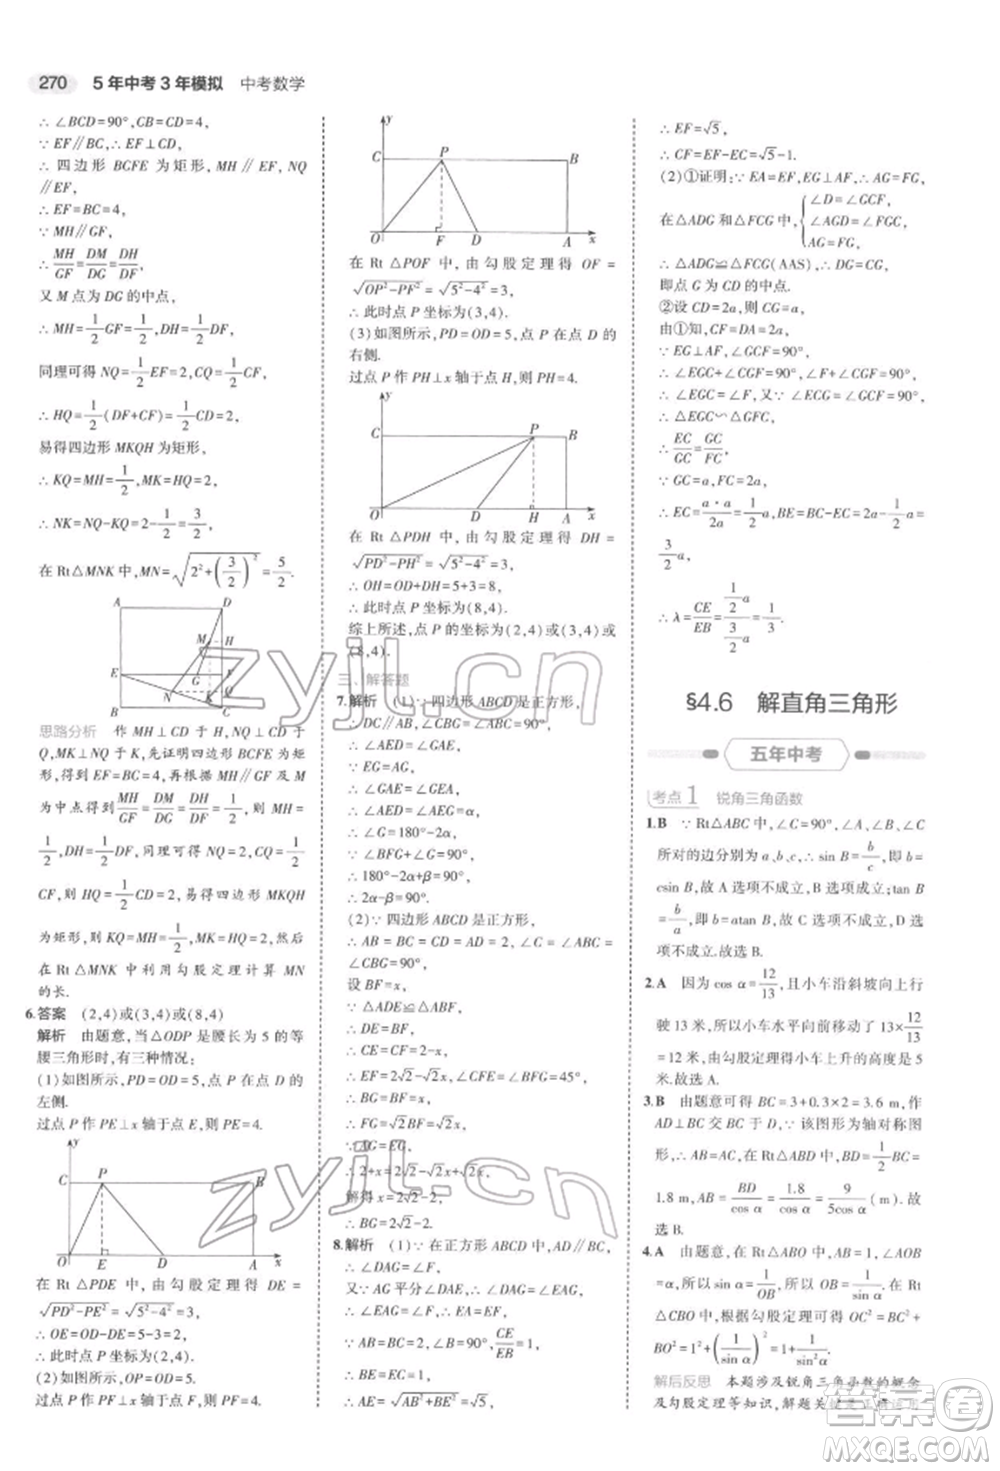 270 5年中考3年模拟 中考数学
∴ ∠BCD=90°,CB=CD=4,
∵ EF∥BC,∴ EF⊥CD,
∴ 四边形 BCFE 为矩形, MH∥EF, NQ
∥EF,
∴ EF=BC=4,
∵ MH∥GF,
∴ MH/GF=DM/DG=DH/DF,
又 M 点为 DG 的中点,
∴ MH=1/2GF=1/2,DH=1/2DF,
同理可得 NQ=1/2EF=2,CQ=1/2CF,
∴ HQ=1/2(DF+CF)=1/2CD=2,
易得四边形 MKQH 为矩形,
∴ KQ=MH=1/2,
∴ NK=NQ-KQ=2-1/2=3/2,
在 Rt△MNK 中,MN=√(2²+(3/2)²)=5/2.
A D
M H
E G F
N Q
B K C
思路分析 作 MH⊥CD 于 H,NQ⊥CD 于
Q,MK⊥NQ 于 K,先证明四边形 BCFE 为矩
形,从而得到 EF=4,再利用 MH∥GF 及 M
为中点得到 MH/GF=DM/DG=DH/DF,从而 MH=
1/2,DH=1/2DF,同理可得 NQ=2,CQ=1/2
CF,则 HQ=1/2CD=2,易得四边形 MKQH
为矩形,则 KQ=MH=1/2,NK=3/2,然后
在 Rt△MNK 中利用勾股定理计算 MN
的长.
6.答案 (2,4)或(3,4)或(8,4)
解析 由题意,当△ODP 是腰长为 5 的等
腰三角形时,有三种情况:
(1)如图所示,PD=OD=5,点 P 在点 D 的
左侧.
过点 P 作 PE⊥x 轴于点 E,则 PE=4.
y
C P B
O E D A x
在 Rt△PDE 中,由勾股定理得 DE=
√(PD²-PE²)=√(5²-4²)=3,
∴ OE=OD-DE=5-3=2,
∴ 此时点 P 坐标为(2,4).
(2)如图所示,OP=OD=5.
过点 P 作 PF⊥x 轴于点 F,则 PF=4.
y
C P B
O F D A x
在 Rt△POF 中,由勾股定理得 OF=
√(OP²-PF²)=√(5²-4²)=3,
∴ 此时点 P 坐标为(3,4).
(3)如图所示,PD=OD=5,点 P 在点 D 的
右侧.
过点 P 作 PH⊥x 轴于点 H,则 PH=4.
y
C P B
O D H A x
在 Rt△PDH 中,由勾股定理得 DH=
√(PD²-PH²)=√(5²-4²)=3,
∴ OH=OD+DH=5+3=8,
∴ 此时点 P 坐标为(8,4).
综上所述,点 P 的坐标为(2,4)或(3,4)或
(8,4).
三、解答题
7.解析 (1)∵ 四边形 ABCD 是正方形,
∴ ∠AED=∠EAG,
∵ EG=AG,
∴ ∠GAE=∠GEA,
∴ ∠GEA=∠AEG=α,
∴ ∠G=180°-2α,
∵ ∠G+∠F=90°,
∴ 180°-2α+β=90°,
∴ 2α-β=90°.
(2)∵ 四边形 ABCD 是正方形,
∴ AB=BC=CD=AD=2, ∠ADE=
∠CBG=90°,
设 BF=x,
∵ △ADE≌△ABF,
∴ DE=BF=x,
∴ EF=2√2-2x,∠CFE=∠GFB=45°,
∴ FG=√2BF=√2x,
∵ AG=EG,
∴ 2+x=2√2-2x+√2x,
解得 x=2√2-2,
∴ BG=2√2-2.
8.解析 (1)∵ 在正方形 ABCD 中,AD∥BC,
∴ ∠DAG=∠F,
又∵ AG 平分∠DAE,∴ ∠DAG=∠EAG,
∴ ∠EAG=∠F,∴ EA=EF,
∵ AB=BC=2,∠B=90°,CE/EB=1,
∴ BE=EC=1,
∴ AE=√(AB²+BE²)=√5,
∴ EF=√5,
∴ CF=EF-EC=√5-1.
(2)①证明:∵ EA=EF,EG⊥AF,∴ AG=FG,
在△ADG 和△FCG 中,{∠D=∠GCF,
∠AGD=∠FGC,
AG=FG,
∴ △ADG≌△FCG(AAS),∴ DG=CG,
即点 G 为 CD 的中点.
②设 CD=2a,则 CG=a,
由①知,CF=DA=2a,
∵ EG⊥AF,∠GCF=90°,
∴ ∠EGC+∠CGF=90°,∠F+∠CGF=90°,
∴ ∠EGC=∠F,又∵ ∠ECG=∠GCF=90°,
∴ △EGC∽△GFC,
∴ EC/GC=GC/FC,
∵ GC=a,FC=2a,
∴ EC=a·a/2a=1/2a,BE=BC-EC=2a-1/2a=
3/2a,
∴ λ=CE/EB=(1/2a)/(3/2a)=1/3.
§4.6 解直角三角形
五年中考
考点1 锐角三角函数
1.B ∵ Rt△ABC 中,∠C=90°,∠A、∠B、∠C
所对的边分别为 a、b、c,∴ sin B=b/c,即 b=
csin B,故 A 选项不成立,B 选项成立;tan B
=b/a,即 b=atan B,故 C 选项不成立,D 选
项不成立.故选 B.
2.A 因为 cos α=12/13,小车沿斜坡向上行
驶 13 米,所以小车水平向前移动 13×12/13
=12 米,由勾股定理得小车上升的高度是 5
米.故选 A.
3.B 由题意可得 BC=3+0.3×2=3.6 m, 作
AD⊥BC 于点 D,∵ Rt△ABC 为轴对称图
形,∴ AB=AC,∠B=∠C=α,BD=1/2BC=
1.8 m,AB=BD/cos α=1.8/cos α=9/5cos α(m).故
选 B.
4.A 由题意得,在 Rt△ABO 中,∵ ∠AOB
=α,所以 sin α=1/OB,所以 OB=1/sin α.在 Rt
△CBO 中,根据勾股定理可得 OC²=BC²+
BO²=1²+(1/sin α)²=1+1/sin²α.故选 A.
解后反思 本题涉及锐角三角函数的概念
及勾股定理等知识,解题关键
zyjl.cn
zyjl.cn
答案圈
MXQE.COM